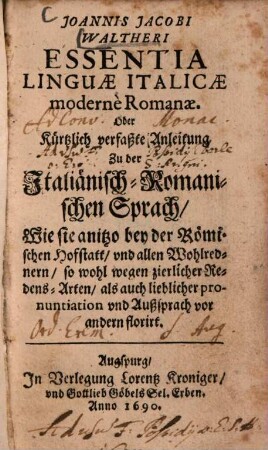 JOANNIS JACOBI
WALTHERI
ESSENTIA
LINGUÆ ITALICÆ
modernè Romanæ.
Oder
Kürtzlich verfaßte Anleitung
Zu der
Italiänisch-Romani-
schen Sprach/
Wie sie anitzo bey der Römi-
schen Hofstatt/ und allen Wohlred-
nern/ so wohl wegen zierlicher Re-
dens-Arten/ als auch lieblicher pro-
nuntiation und Außsprach vor
andern florirt.
Augspurg/
In Verlegung Lorentz Kroniger/
und Gottlieb Göbels Sel. Erben.
Anno 1690.